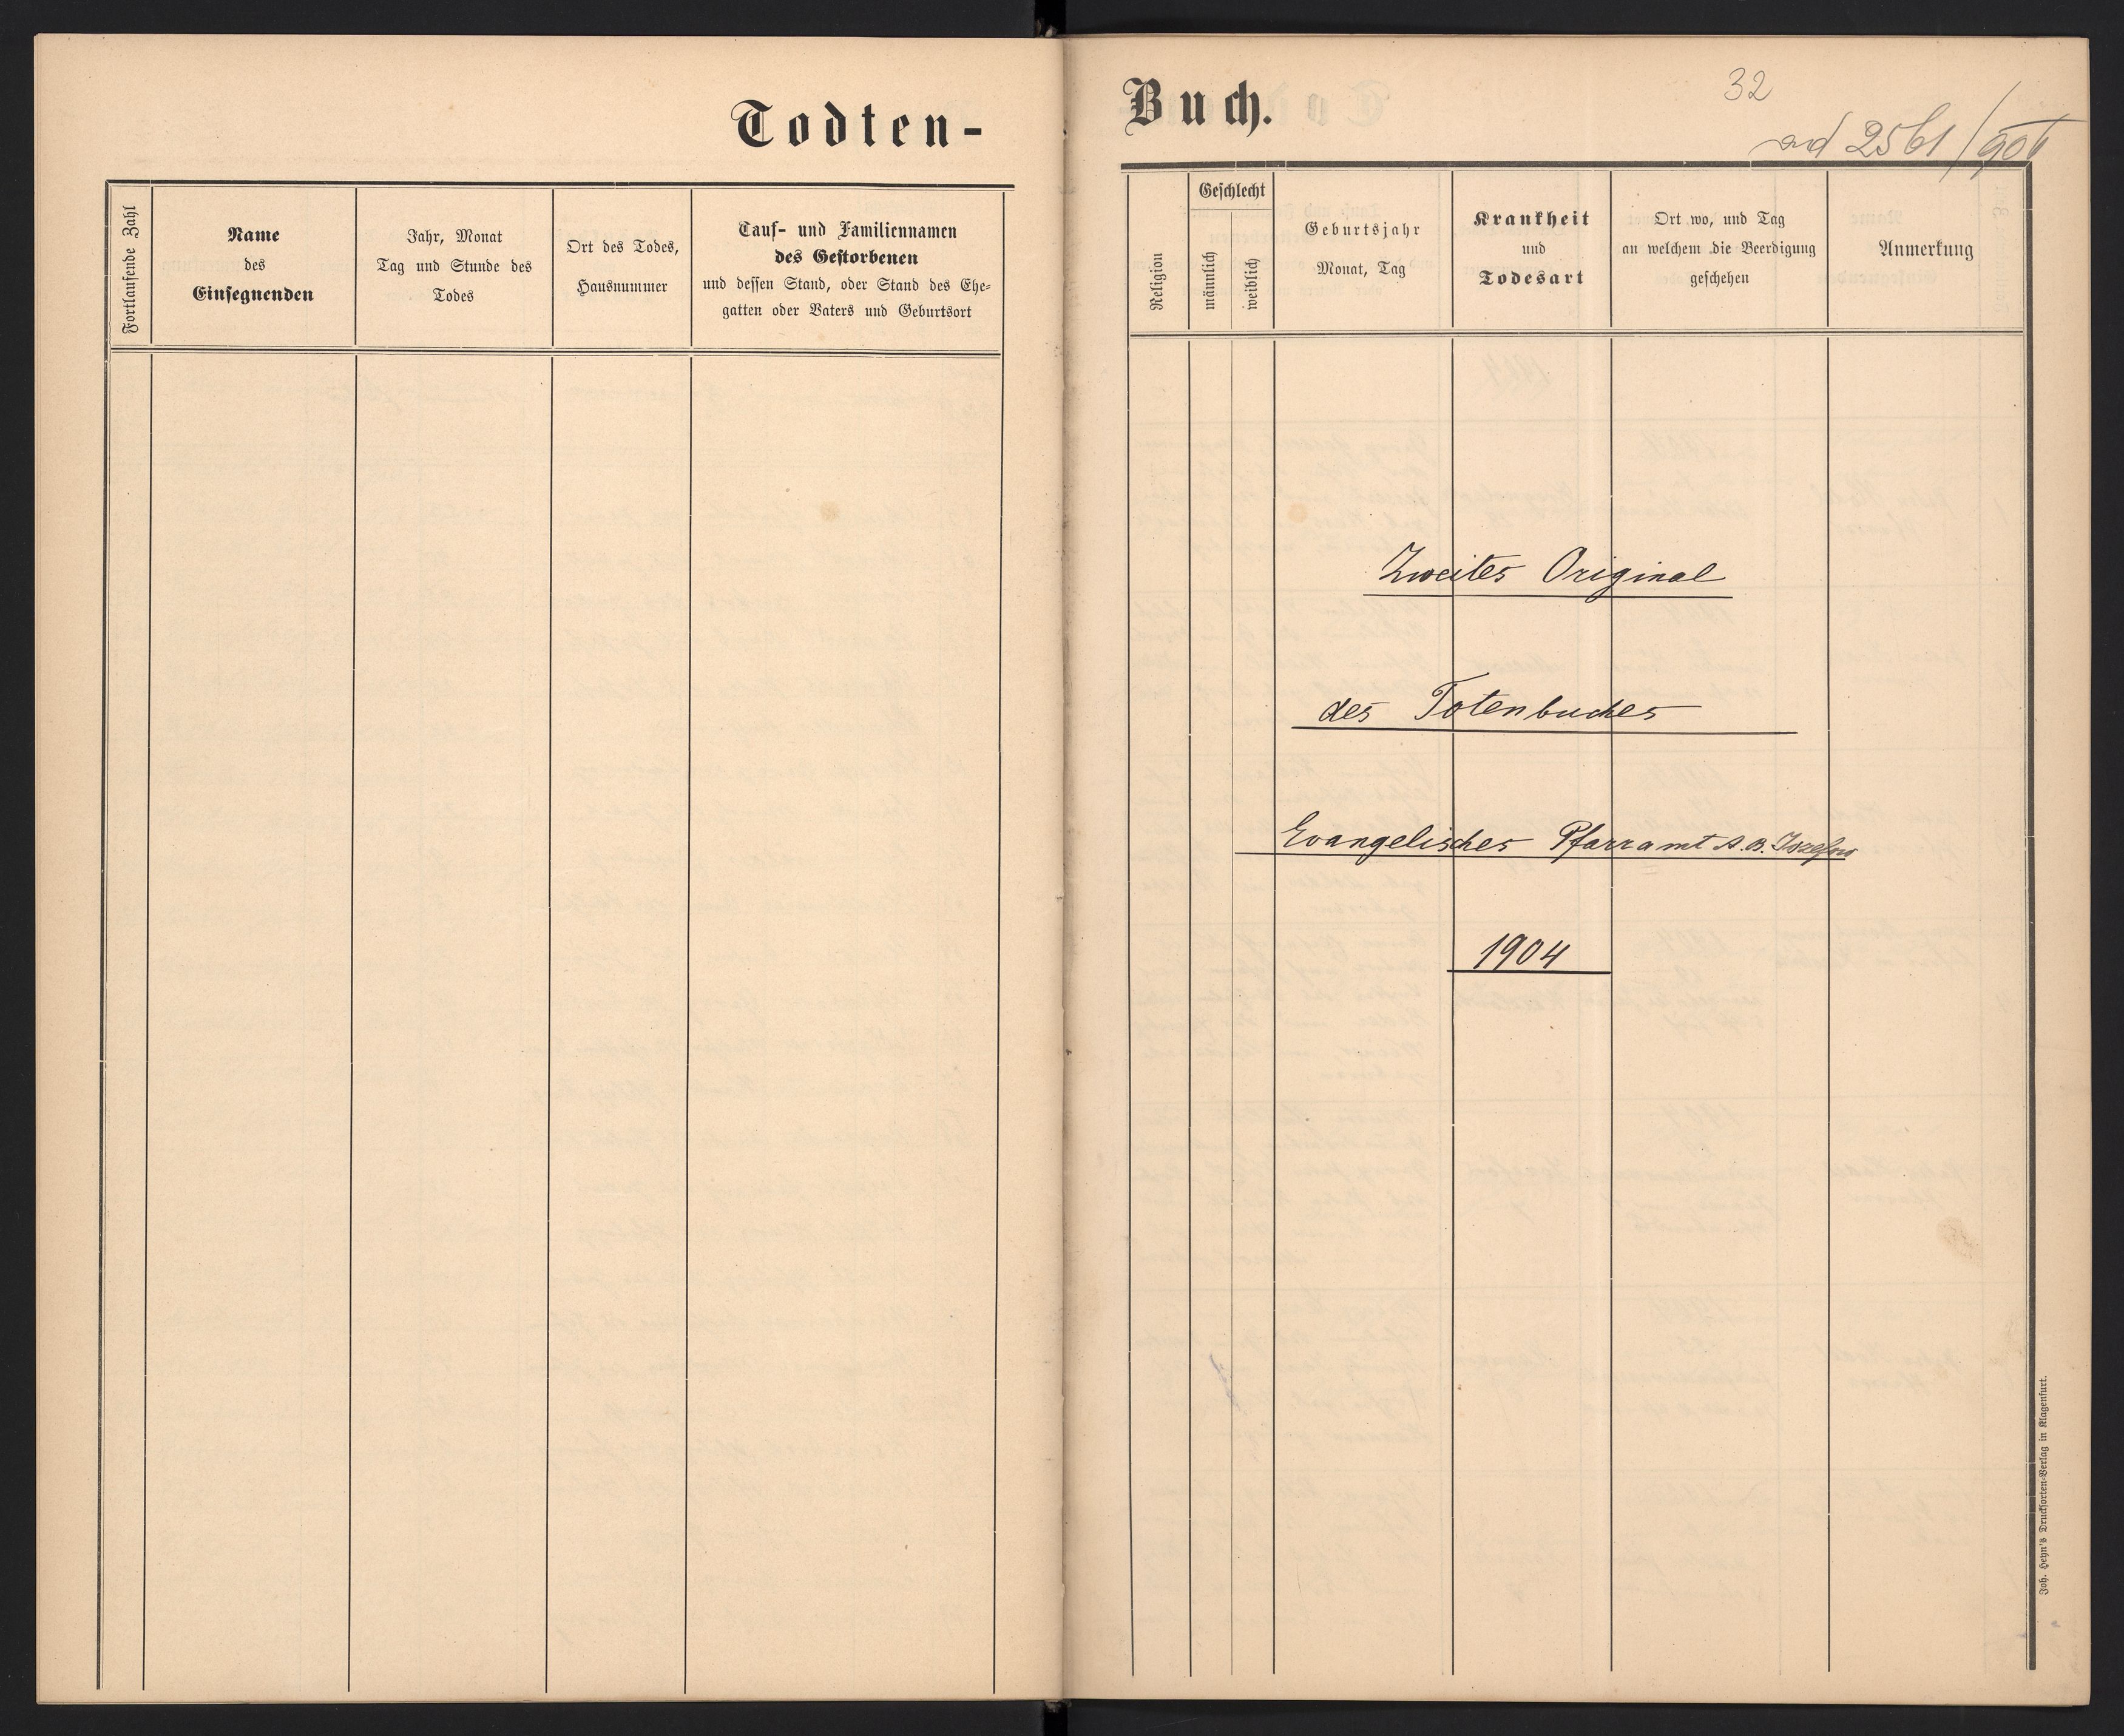 Todten-
Fortlaufende Zahl
Name
des
Einsegnenden
Jahr, Monat
Tag und Stunde des
Todes
Ort des Todes,
Hausnummer
Tauf- und Familiennamen
des Gestorbenen
und dessen Stand, oder Stand des Ehe-
gatten oder Vaters und Geburtsort
Buch.
32
ad 2561/906
Religion
Geschlecht
männlich
weiblich
Geburtsjahr
Monat, Tag
Krankheit
und
Todesart
Ort wo, und Tag
an welchem die Beerdigung
geschehen
Anmerkung
Zweites Original
des Totenbuches
Evangelisches Pfarramt A. B. Józefów
1904
Joh. Heyn's Drucksorten-Verlag in Klagenfurt.